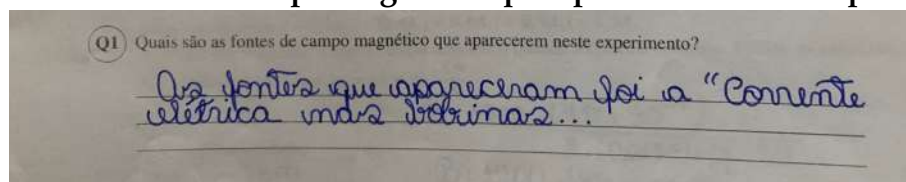 Q1 Quais são as fontes de campo magnético que aparecerem neste experimento?
As fontes que apareceram foi a "Corrente
elétrica nas bobinas...